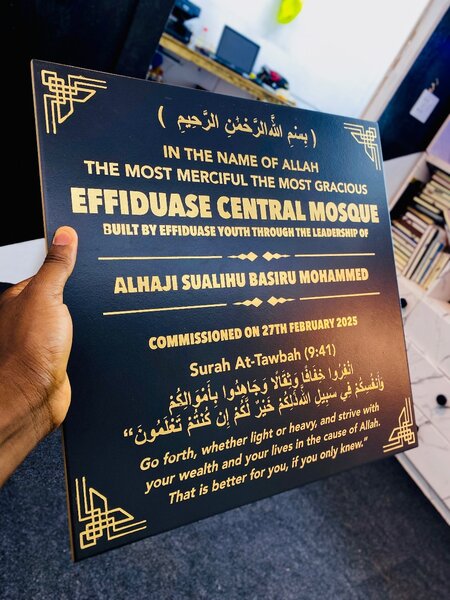 ( بِسْمِ اللَّهِ الرَّحْمَٰنِ الرَّحِيمِ )
IN THE NAME OF ALLAH
THE MOST MERCIFUL THE MOST GRACIOUS
EFFIDUASE CENTRAL MOSQUE
BUILT BY EFFIDUASE YOUTH THROUGH THE LEADERSHIP OF
ALHAJI SUALIHU BASIRU MOHAMMED
COMMISSIONED ON 27TH FEBRUARY 2025
Surah At-Tawbah (9:41)
انْفِرُوا خِفَافًا وَثِقَالًا وَجَاهِدُوا بِأَمْوَالِكُمْ
وَأَنْفُسِكُمْ فِي سَبِيلِ اللَّهِ ذَلِكُمْ خَيْرٌ لَّكُمْ إِن كُنتُمْ تَعْلَمُونَ“
Go forth, whether light or heavy, and strive with
your wealth and your lives in the cause of Allah.
That is better for you, if you only knew.”